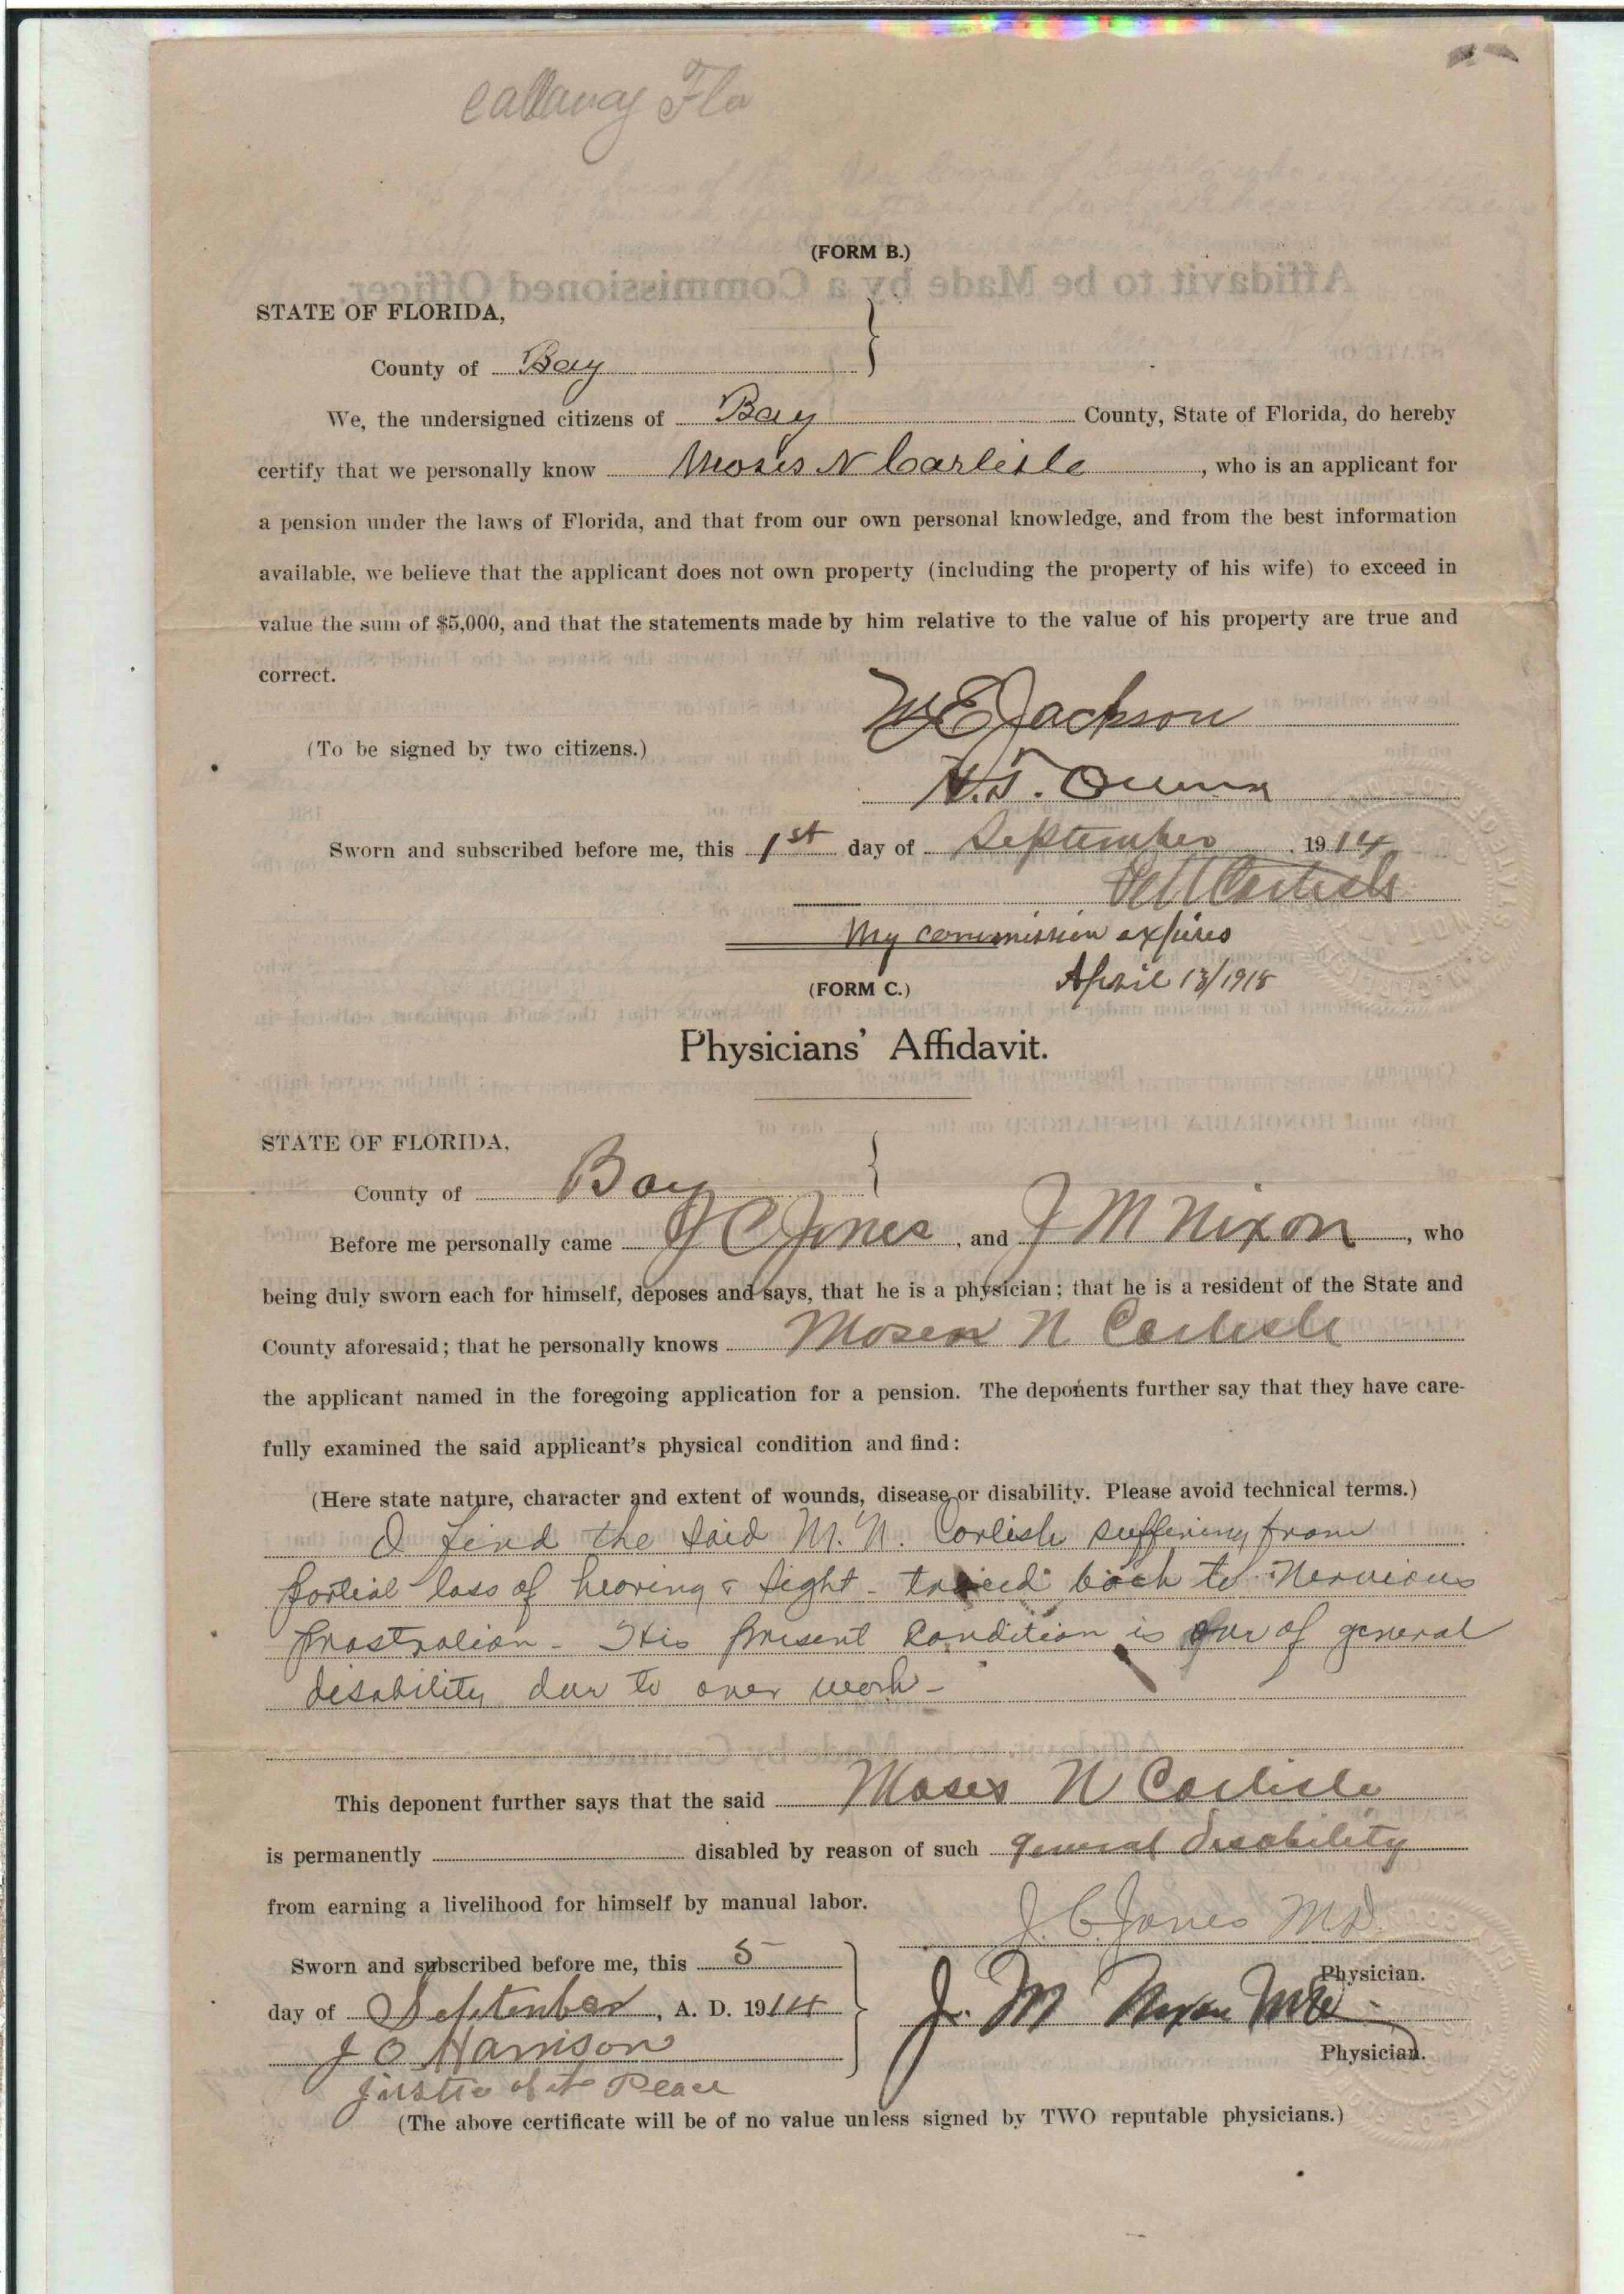 Callaway Fla
(FORM B.)
STATE OF FLORIDA,
County of Bay
We, the undersigned citizens of Bay County, State of Florida, do hereby
certify that we personally know Moses N Carlisle, who is an applicant for
a pension under the laws of Florida, and that from our own personal knowledge, and from the best information
available, we believe that the applicant does not own property (including the property of his wife) to exceed in
value the sum of $5,000, and that the statements made by him relative to the value of his property are true and
correct.
W E Jackson
(To be signed by two citizens.)
H.T.
Sworn and subscribed before me, this 1st day of September 1914
Carlisle
My commission expires
April 13/1918
(FORM C.)
Physicians' Affidavit.
STATE OF FLORIDA,
County of Bay
Before me personally came J C Jones, and J M Nixon, who
being duly sworn each for himself, deposes and says, that he is a physician; that he is a resident of the State and
County aforesaid; that he personally knows Moses N Carlisle
the applicant named in the foregoing application for a pension. The deponents further say that they have care-
fully examined the said applicant's physical condition and find:
(Here state nature, character and extent of wounds, disease or disability. Please avoid technical terms.)
I find the said M. N. Carlisle suffering from
partial loss of hearing & sight - traced back to Nervious
prostration - His present Condition is one of general
disability due to over work -
This deponent further says that the said Moses N Carlisle
is permanently disabled by reason of such general disability
from earning a livelihood for himself by manual labor.
J. C. Jones M.D.
Physician.
Sworn and subscribed before me, this 5
day of September, A. D. 1914
J. M Nixon MD
Physician.
J O Harrison
Justice of the Peace
(The above certificate will be of no value unless signed by TWO reputable physicians.)